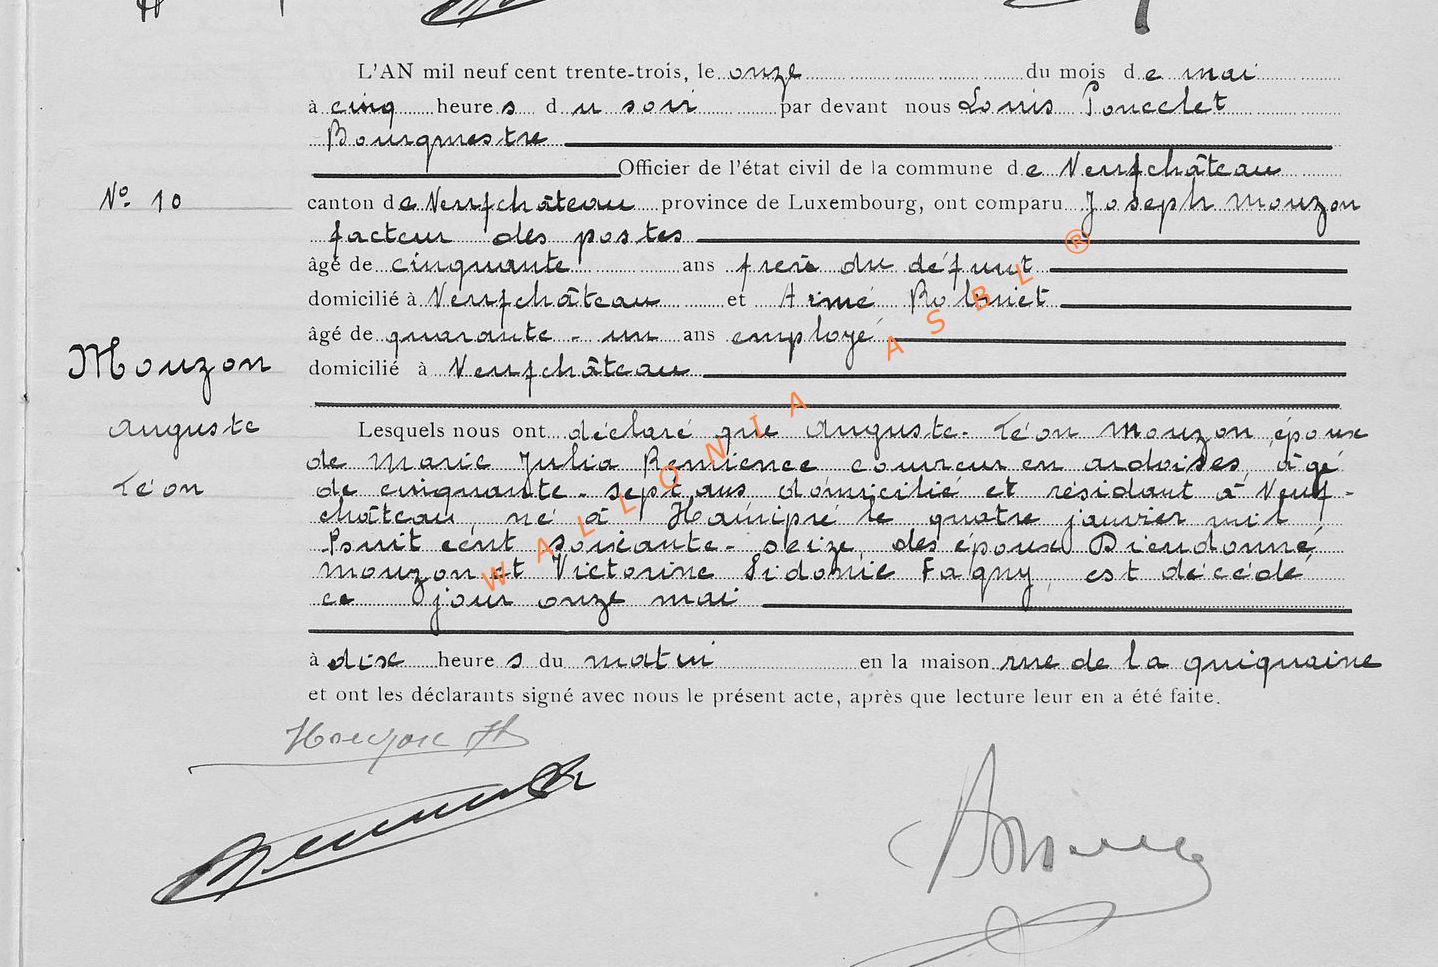 L'AN mil neuf cent trente-trois, le onze du mois de mai
à cinq heures du soir par devant nous Louis Poncelet
Bourgmestre
Officier de l'état civil de la commune de Neufchâteau
Nº 10
canton de Neufchâteau province de Luxembourg, ont comparu Joseph Mouzon
facteur des postes
âgé de cinquante ans frère du défunt
domicilié à Neufchâteau et Aimé Robinet
âgé de quarante-un ans employé
domicilié à Neufchâteau
Mouzon
Auguste
Léon
Lesquels nous ont déclaré que Auguste-Léon Mouzon, époux
de Marie Julia Remience couvreur en ardoises, âgé
de cinquante-sept ans domicilié et résidant à Neuf-
château, né à Hamipré le quatre janvier mil
huit cent soixante-seize, des époux Dieudonné
Mouzon et Victorine Sidonie Fagny, est décédé
ce jour onze mai
à dix heures du matin en la maison rue de la quiquaine
et ont les déclarants signé avec nous le présent acte, après que lecture leur en a été faite.
WALLONIA ASBL ®